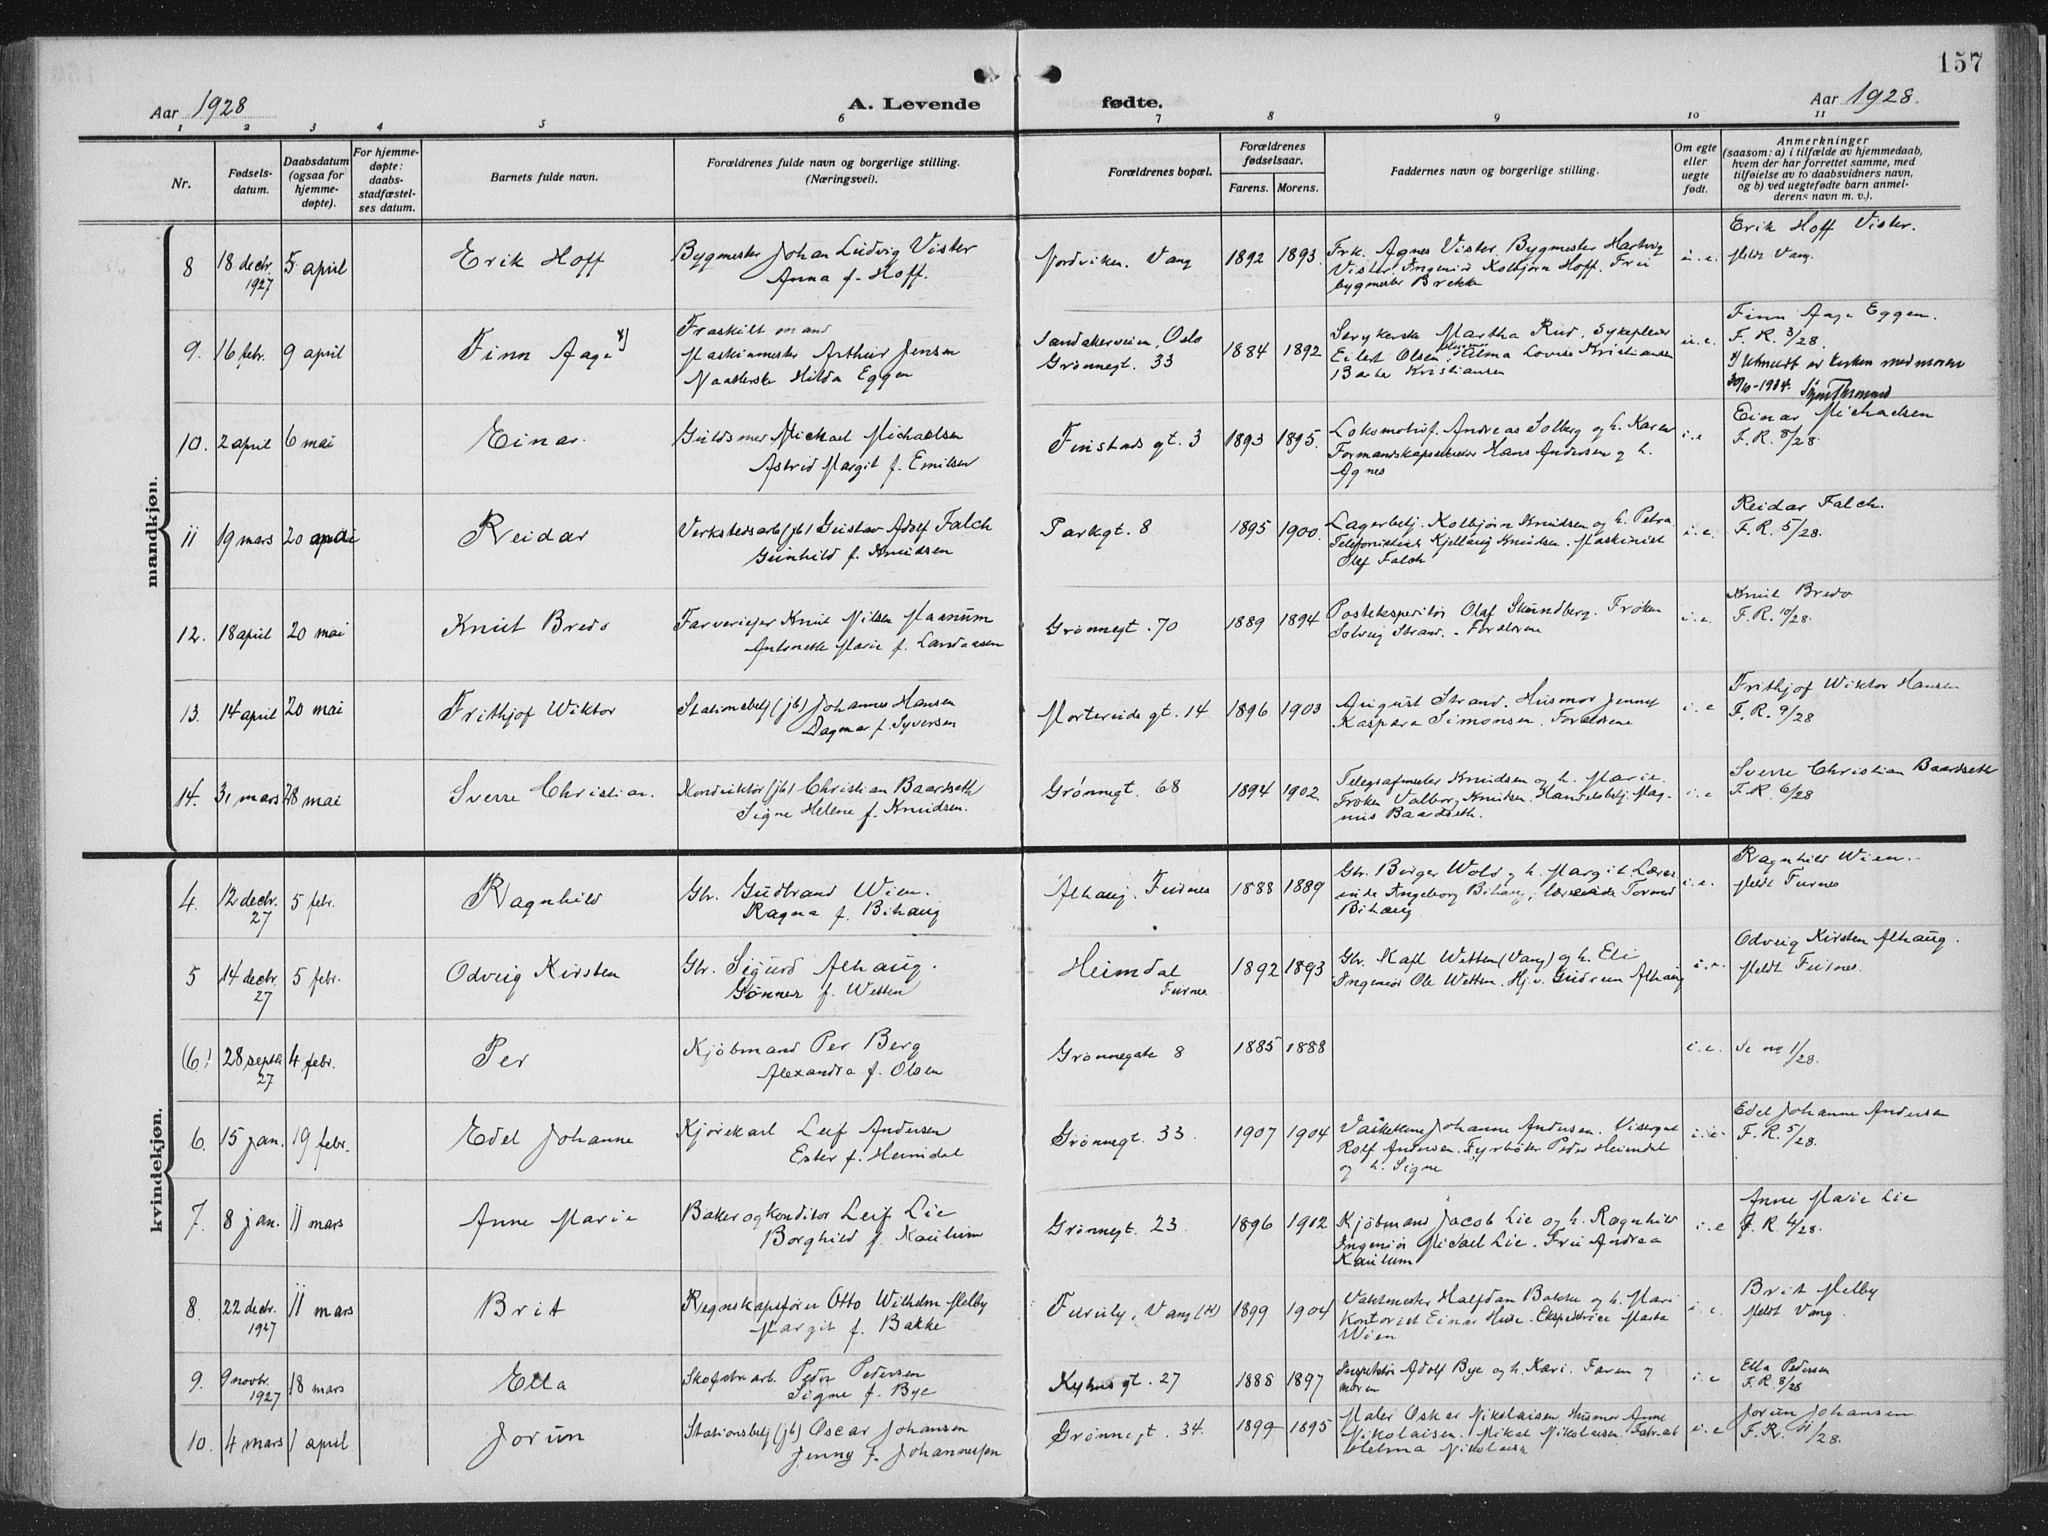 157
Aar 1928
A. Levende fødte.
Aar 1928.
1 2 3 4 5 6 7 8 9 10 11
Nr.
Fødsels-
datum.
Daabsdatum
(ogsaa for
hjemme-
døpte).
For hjemme-
døpte:
daabs-
stadfæstel-
ses datum.
Barnets fulde navn.
Forældrenes fulde navn og borgerlige stilling.
(Næringsvei).
Forældrenes bopæl.
Forældrenes
fødselsaar.
Farens. Morens.
Faddernes navn og borgerlige stilling.
Om egte
eller
uegte
født.
Anmerkninger
(saasom: a) i tilfælde av hjemmedaab,
hvem der har forrettet samme, med
tilføielse av to daabsvidners navn,
og b) ved uegtefødte barn anmel-
derens navn m. v.).
mandkjøn.
8
18 decbr.
1927
5 april
Erik Hoff
Bygmester Johan Ludvig Vister
Anna f. Hoff.
Nordviken. Vang
1892
1893.
Frk. Agnes Vister. Bygmester Hartvig
Vister. Ingeniør Kolbjørn Hoff. Frü
bygmester Brekke
Erik Hoff Vister.
Meldt Vang.
9.
16 febr.
9 april
Finn Aage
Fraskilt mand
Maskinmester Arthur Jensen
Hilda Eggen
Sandakerveien, Oslo
Grønnegt. 33
1884
1892
Martha Rud, Sykepleier
Eilert Olsen, Hilma Lovise Kristiansen
Kristiansen
u.e.
Finn Aage Eggen.
F. R. 3/28.
Utmeldt av kirken med moren
10.
2 april
6 mai
Einar.
Guldsmed Mickael Michaelsen
Astrid Margit f. Emilsen
Finstads gt. 3
1893
1895.
Lokomotivf. Andreas Solberg og h. Karen
Hans Andersen og h.
Agnes
i.e
Einar Michaelsen
F. R. 8/28.
11
19 mars
20 mai
Reidar
Verkstedsarb. (jb) Gustav Adolf Falch
Gunhild f. Knudsen
Parkgt. 8
1895
1900.
Lagerbetj. Kolbjørn Knudsen og h. Petra
Kjellaug Knudsen. Maskinist
Olef Falch
i.e.
Reidar Falch.
F. R. 5/28.
12.
18 april
20 mai
Knut Bredo
Farveriejer Knut Nilsen Manum
Antonette Marie f. Landaasen
Grønnegt. 70
1889
1894
Postekspeditør Olaf Skundberg. Frøken
Solveig Strand. Forældrene
i.e.
Knut Bredo
F. R. 10/28.
13.
14 april
20 mai
Frithjof Wiktor
Stationsbetj (jb) Johannes Hansen
Dagmar f. Syversen
Mortervids gt. 14
1896
1903
August Strand. Husmor Jenny
Kaspara Simonsen. Forældrene
i.e
Frithjof Wiktor Hansen
F. R. 9/28
14.
31 mars
28 mai
Sverre Christian.
Konduktør (jb) Christian Baardseth
Signe Helene f. Knudsen.
Grønnegt. 68
1894
1902.
Telegrafmester Knudsen og h. Marie.
Frøken Valborg Knudsen. Handelsbetj. Mag-
nus Baardseth.
i.e
Sverre Christian Baardseth
F. R. 6/28
kvindekjøn.
4.
12 decbr.
27
5 febr.
Ragnhild
Gbr. Gudbrand Wien.
Ragna f. Bihaug
Alhaug. Furnes
1888
1889
Gbr. Birger Wold og h. Margit. Lærer
inde Ingeborg Bihaug, Tormod
Bihaug
i.e.
Ragnhild Wien.
Meldt Furnes
5
14 decbr.
27
5 febr.
Odveig Kirsten
Gbr. Sigurd Alhaug.
Gunner f. Wetten
Heimdal
Furnes.
1892
1893
Gbr. Wetten (Vang) og h. Eli
Ingeniør Ole Wetten. Hj. v. Gudrun Alhaug
i.e.
Odveig Kirsten Alhaug.
Meldt Furnes.
(6.)
28 septbr
27
4 febr.
Per
Kjøbmand Per Berg
Alexandra f. Olsen
Grønnegate 8
1885
1888
i.e.
Se no 1/28.
6.
15 jan.
19 febr.
Edel Johanne
Kjørekarl Leif Andersen
Ester f. Heimdal
Grønnegt. 33.
1907
1904
Vaskekone Johanne Andersen. Visergut
Rolf Andersen. Fyrbøter Peder Heimdal
og h. Signe
Edel Johanne Andersen
F. R. 5/28.
7.
8 jan.
11 mars
Anne Marie
Baker og konditor Leif Lie
Borghild f. Kaurum
Grønnegt. 23.
1896
1902
Kjøbmand Jacob Lie og h. Ragnhild
Ingeniør Lie. Fru Andrea
i.e
Anne Marie Lie
F. R. 4/28.
8.
22 decbr.
1927
11 mars
Brit
Regnskapsfører Otto Wilhelm Melby
Margit f. Bakke
Furuly, Vang (H)
1899
1904
Vaktmester Halfdan Bakke og h. Mari
Kontorist Einar Huse. Ekspeditrice Marta
Wien
i.e.
Brit Melby
Meldt Vang.
9.
9 novbr.
1927
18 mars
Ella
Peder Pedersen
Signe f. Bye
Kyhns gt. 27
1888
1897
Inspektør Adolf Bye og h. Kari. Faren og
moren
i.e
Ella Pedersen
F. R. 8/28
10.
4 mars
1 april
Jorun
Stationsbetj (jb) Oscar Johansen
Jenny f. Johannessen
Grønnegt. 34.
1899
1895
Maler Oskar Nikolaisen. Husmor Anne
Nikolaisen. Mikal Nikolaisen. Fabr.arb
Helma Nikolaisen
i.e
Jorun Johansen
F. R. 11/28.